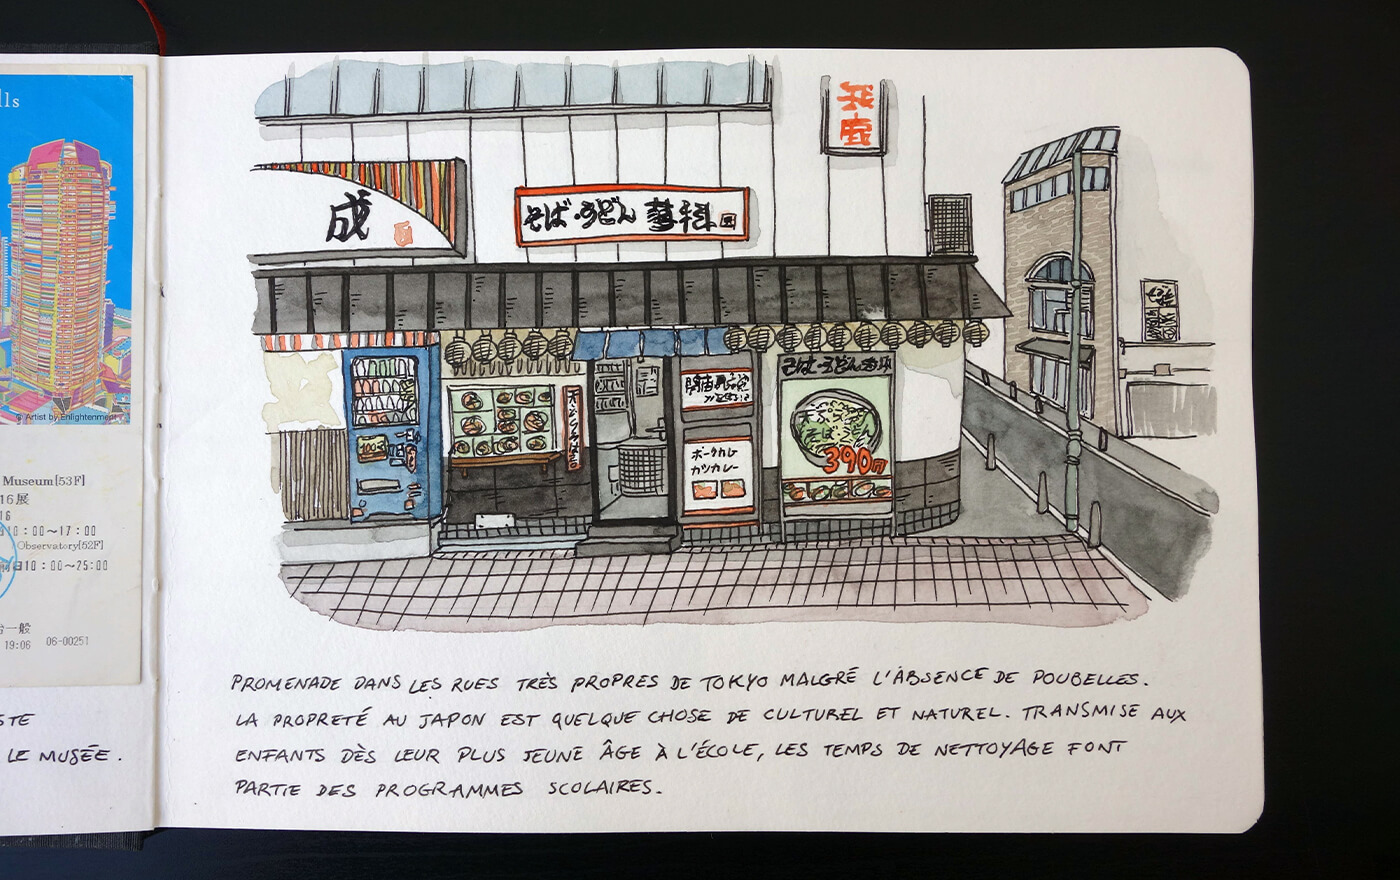 lls
© Artist by Enlightenment
Museum[53F]
16展
16
10：00～17：00
Observatory[52F]
日10：00～25:00
一般
19:06 06-00251
STE
LE MUSÉE.
成
そば・うどん
そば・うどん
100
天ぷら
そば・うどん
390円
ポークカレー
カツカレー
PROMENADE DANS LES RUES TRÈS PROPRES DE TOKYO MALGRÉ L'ABSENCE DE POUBELLES.
LA PROPRETÉ AU JAPON EST QUELQUE CHOSE DE CULTUREL ET NATUREL. TRANSMISE AUX
ENFANTS DÈS LEUR PLUS JEUNE ÂGE À L'ÉCOLE, LES TEMPS DE NETTOYAGE FONT
PARTIE DES PROGRAMMES SCOLAIRES.